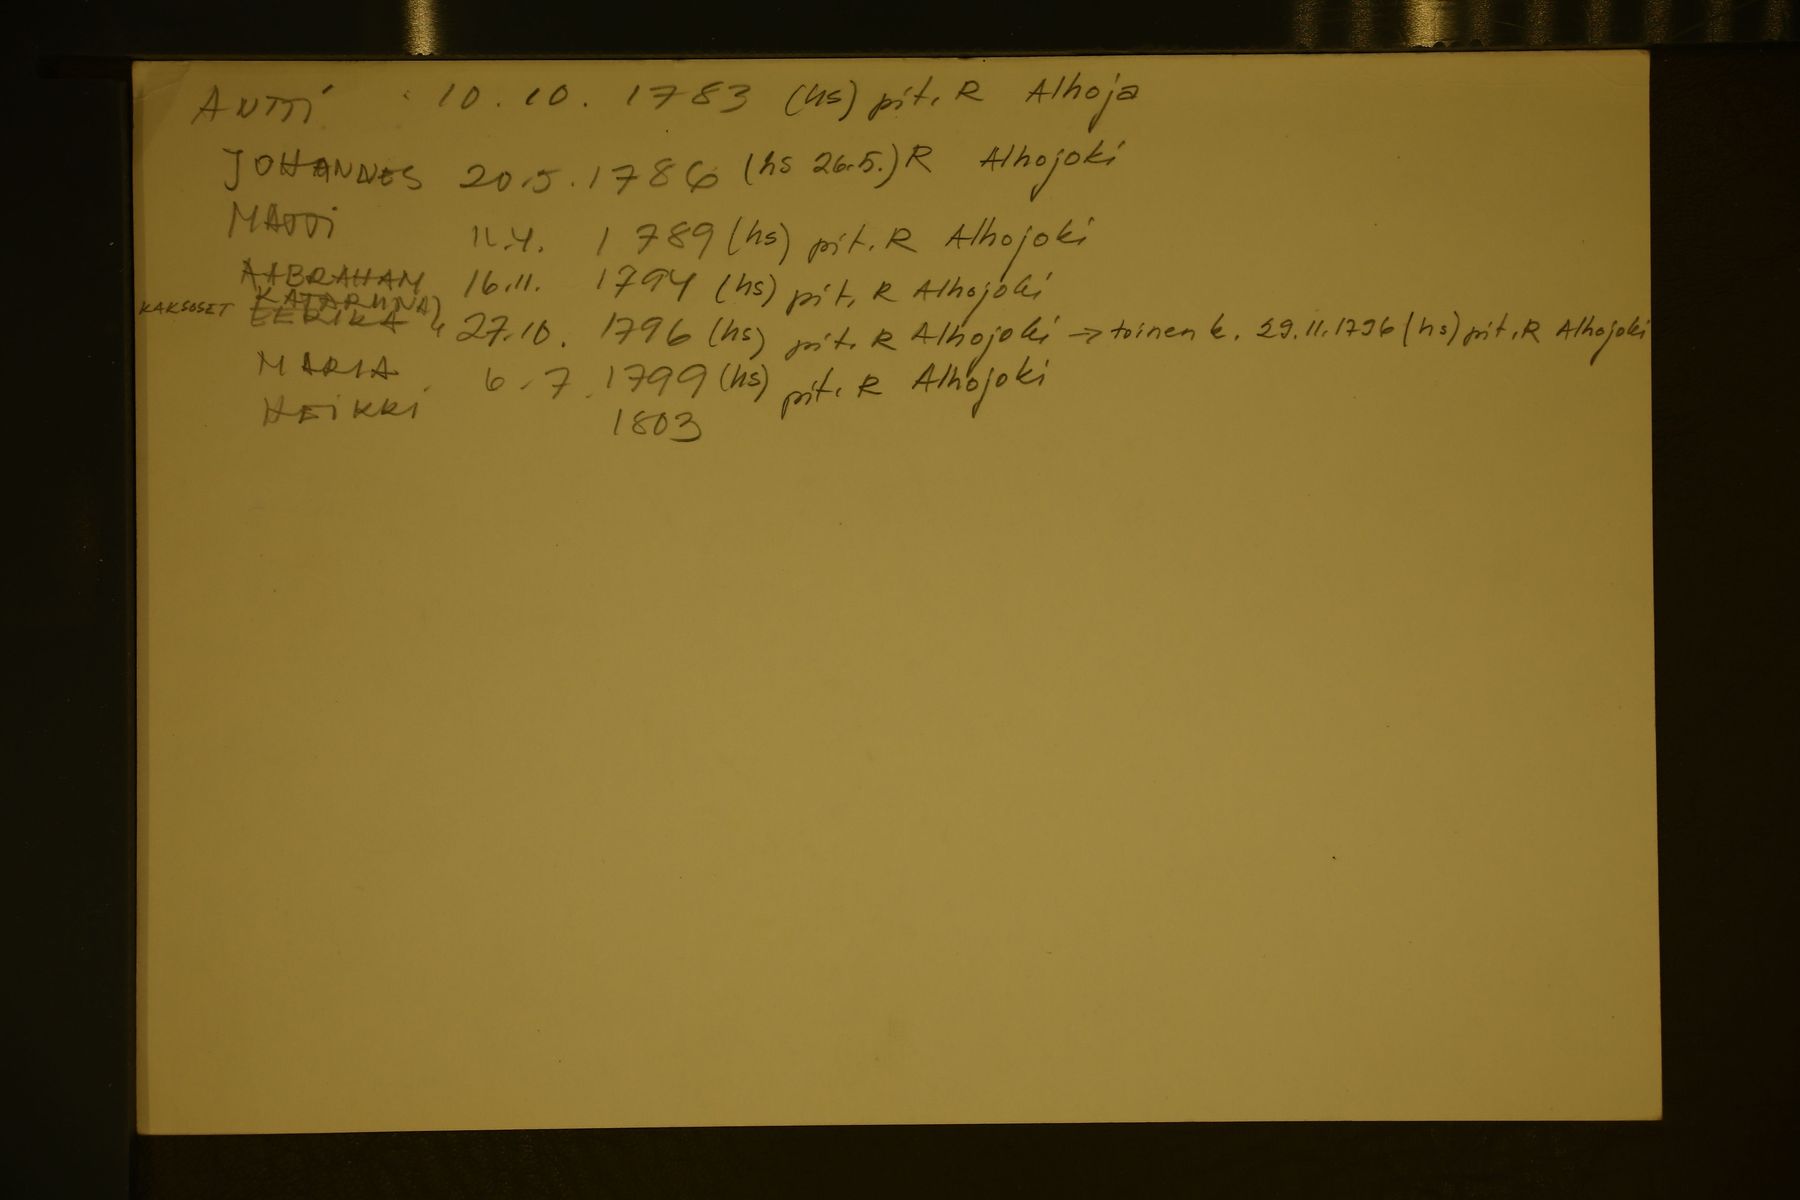 ANTTI 10.10.1783 (hs) pit. R Alhoja
JOHANNES 20.5.1786 (hs 26.5.) R Alhojoki
MATTI 11.4. 1789 (hs) pit. R Alhojoki
AABRAHAM 16.11. 1794 (hs) pit. R Alhojoki
KATARIINA
KAKSOSET EERIKA 27.10. 1796 (hs) pit. R Alhojoki → toinen k. 29.11.1796 (hs) pit. R Alhojoki
MARIA 6.7.1799 (hs) pit. R Alhojoki
HEIKKI 1803